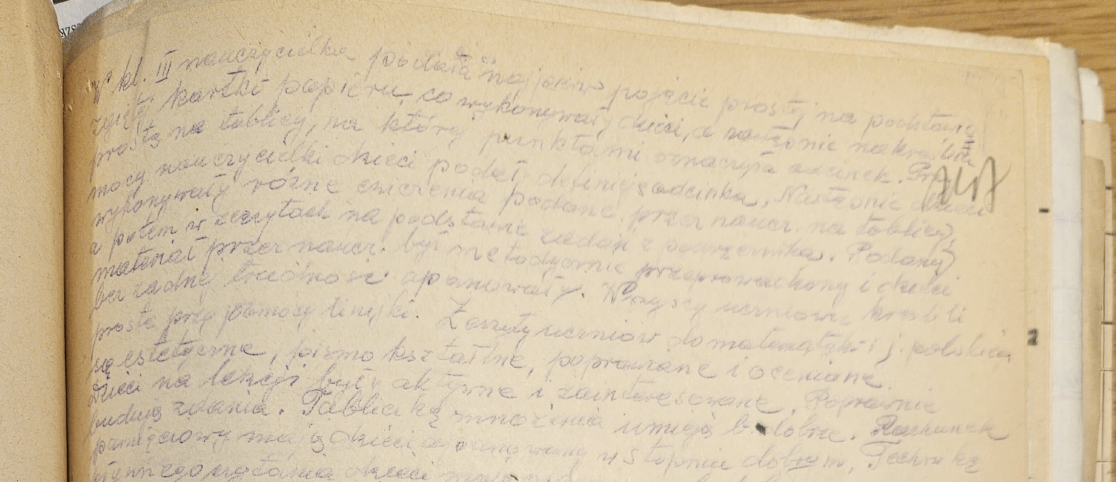 W kl. III nauczycielka podała najpierw pojęcie prostej na podstawie
zgiętej kartki papieru, co wykonywały dzieci, a następnie nakreśliła
prostą na tablicy, na której punktami oznaczyła odcinek. Przy
mocy nauczycielki dzieci podały definicję odcinka. Następnie dzieci
wykonywały różne ćwiczenia podane przez naucz. na tablicy,
a potem w zeszytach na podstawie zadań z podręcznika. Podany
materiał przez naucz. był metodycznie przeprowadzony i dzieci
bez żadnej trudności opanowały. Wszyscy uczniowie kreślili
proste przy pomocy linijki. Zeszyty uczniów do matematyki i j. polskiego
są estetyczne, pismo kształtne, poprawiane i oceniane.
Dzieci na lekcji były aktywne i zainteresowane. Poprawnie
budują zdania. Tabliczkę mnożenia umieją b. dobrze. Rachunek
pamięciowy mają dzieci opanowany w stopniu dobrym. Technikę
czytania dzieci